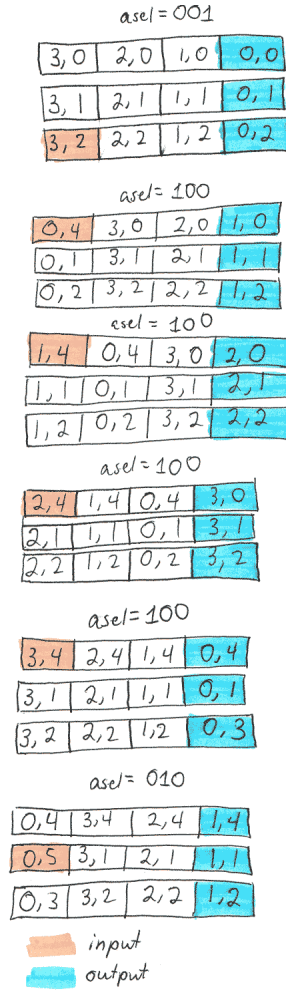 asel = 001
3,0 2,0 1,0 0,0
3,1 2,1 1,1 0,1
3,2 2,2 1,2 0,2
asel = 100
0,4 3,0 2,0 1,0
0,1 3,1 2,1 1,1
0,2 3,2 2,2 1,2
asel = 100
1,4 0,4 3,0 2,0
1,1 0,1 3,1 2,1
1,2 0,2 3,2 2,2
asel = 100
2,4 1,4 0,4 3,0
2,1 1,1 0,1 3,1
2,2 1,2 0,2 3,2
asel = 100
3,4 2,4 1,4 0,4
3,1 2,1 1,1 0,1
3,2 2,2 1,2 0,3
asel = 010
0,4 3,4 2,4 1,4
0,5 3,1 2,1 1,1
0,3 3,2 2,2 1,2
input
output